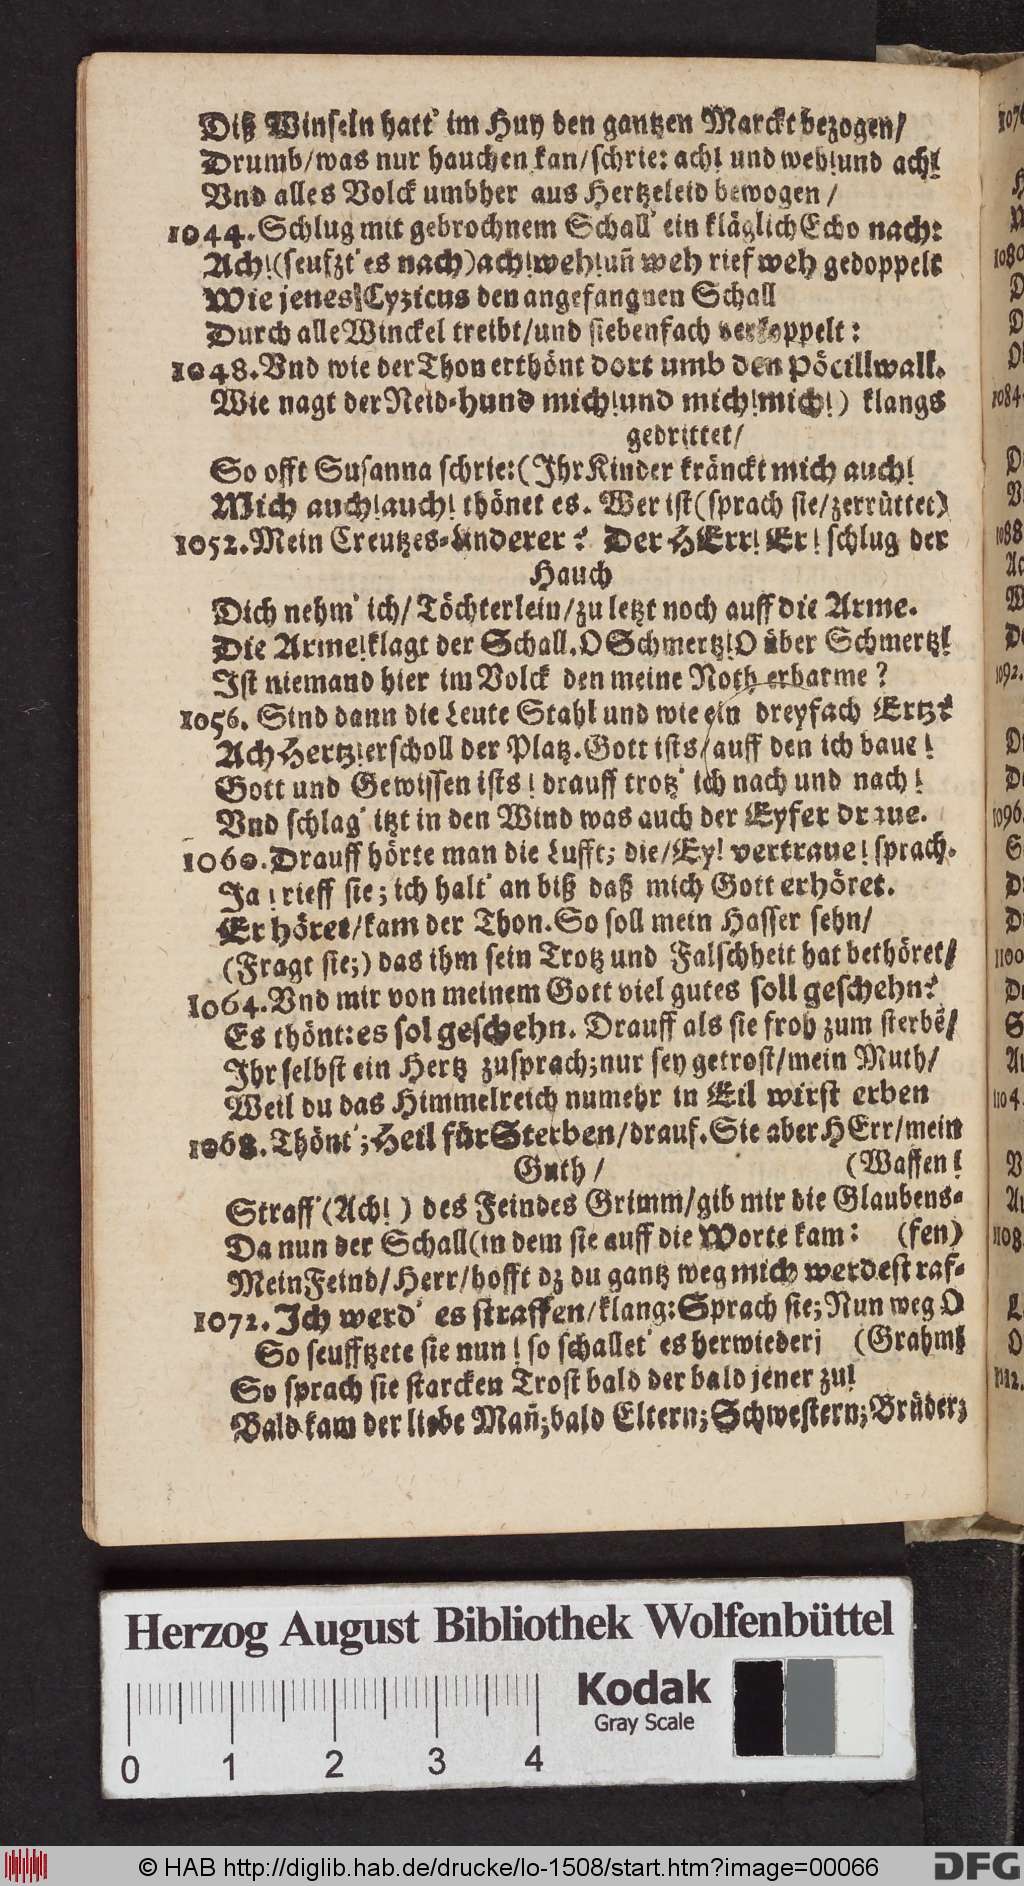 Diß Winseln hatt' im Huy den gantzen Marckt bezogen/
Drumb/was nur hauchen kan/schrie: ach! und weh!und ach!
Vnd alles Volck umbher aus Hertzeleid bewogen /
1044. Schlug mit gebrochnem Schall' ein kläglich Echo nach:
Ach!(seufzt' es nach)ach!weh!uñ weh rief weh gedoppelt
Wie jenes Cyzicus den angefangnen Schall
Durch alle Winckel treibt/und siebenfach verkoppelt:
1048. Vnd wie der Thon erthönt dort umb den Pöcillwall.
Wie nagt der Neid-hund mich!und mich!mich!) klangs
gedrittet/
So offt Susanna schrie:(Ihr Kinder kränckt mich auch!
Mich auch!auch! thönet es. Wer ist(sprach sie/zerrüttet)
1052. Mein Creutzes-Linderer? Der HErr! Er! schlug der
Hauch
Dich nehm' ich/ Töchterlein/zu letzt noch auff die Arme.
Die Arme!klagt der Schall. O Schmertz!O über Schmertz!
Ist niemand hier im Volck den meine Noth erbarme?
1056. Sind dann die Leute Stahl und wie ein dreyfach Ertz?
Ach Hertz!erscholl der Platz. Gott ists/auff den ich baue!
Gott und Gewissen ists! drauff trotz' ich nach und nach!
Vnd schlag' itzt in den Wind was auch der Eyfer draue.
1060. Drauff hörte man die Lufft; die/Ey! vertraue! sprach.
Ja! rieff sie; ich halt' an biß daß mich Gott erhöret.
Er höret/kam der Thon. So soll mein Hasser sehn/
(Fragt sie;) das ihm sein Trotz und Falschheit hat bethöret/
1064. Vnd mir von meinem Gott viel gutes soll geschehn?
Es thönt: es sol geschehn. Drauff als sie froh zum sterbẽ/
Ihr selbst ein Hertz zusprach;nur sey getrost/mein Muth/
Weil du das Himmelreich numehr in Eil wirst erben
1068. Thönt'; Heil für Sterben/drauf. Sie aber HErr/mein
Guth / (Waffen!
Straff'(Ach!) des Feindes Grimm/gib mir die Glaubens-
Da nun der Schall(in dem sie auff die Worte kam: (fen)
Mein Feind/Herr/hofft dz du gantz weg mich werdest raf-
1072. Ich werd' es straffen/klang: Sprach sie; Nun weg O
So seufftzete sie nun! so schallet' es herwieder; (Grahm!
So sprach sie starcken Trost bald der bald jener zu!
Bald kam der liebe Mañ;bald Eltern; Schwestern;Brüder;
1080
1084
1088
1092.
1096.
1100
1104.
1108
1112.
Herzog August Bibliothek Wolfenbüttel
Kodak
Gray Scale
0 1 2 3 4
© HAB http://diglib.hab.de/drucke/lo-1508/start.htm?image=00066
DFG